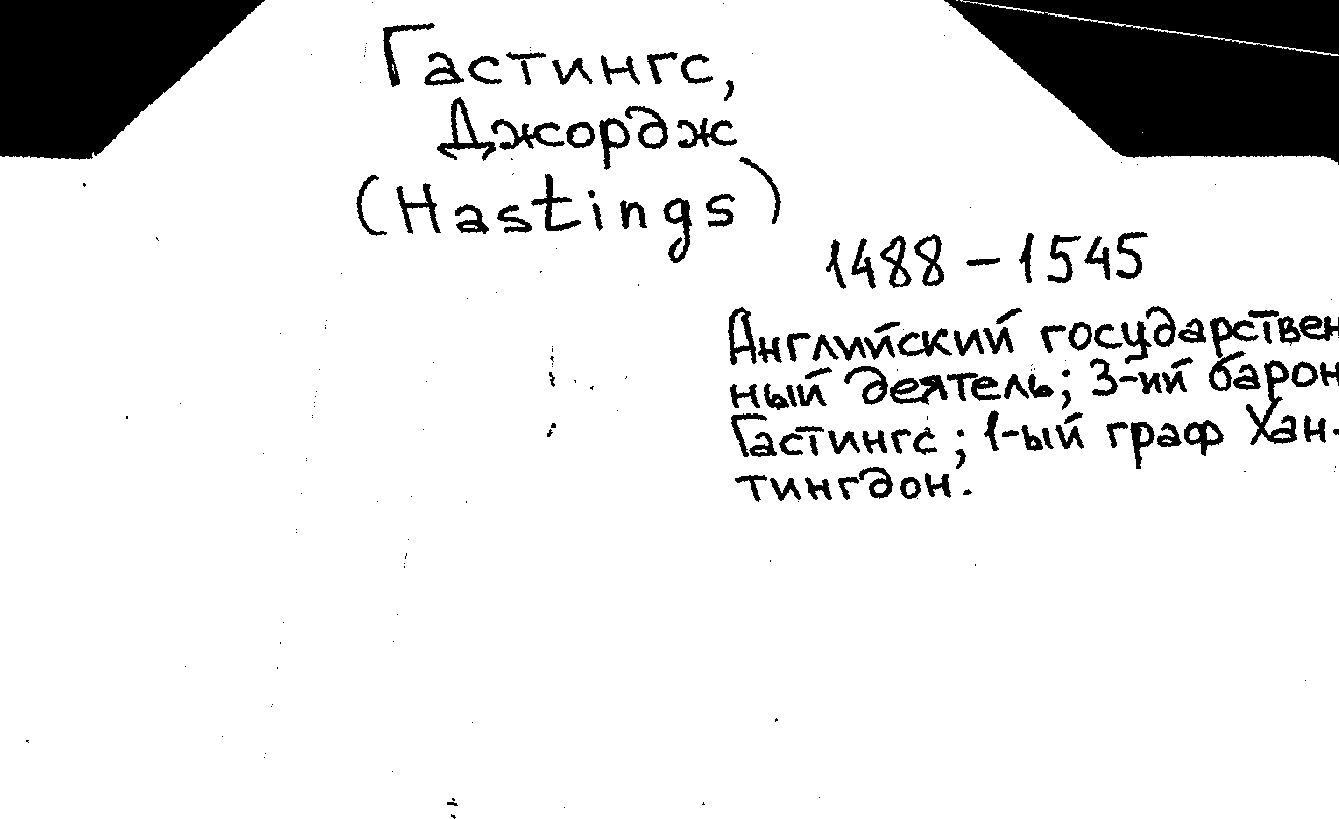 Гастингс,
Джордж
(Hastings)
1488 – 1545
Английский государствен
ный деятель; 3-ий барон
Гастингс; 1-ый граф Хан-
тингдон.